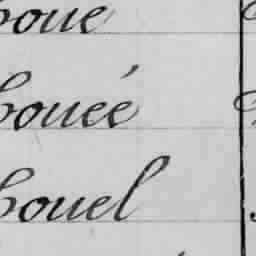 boue
bouée
bouel